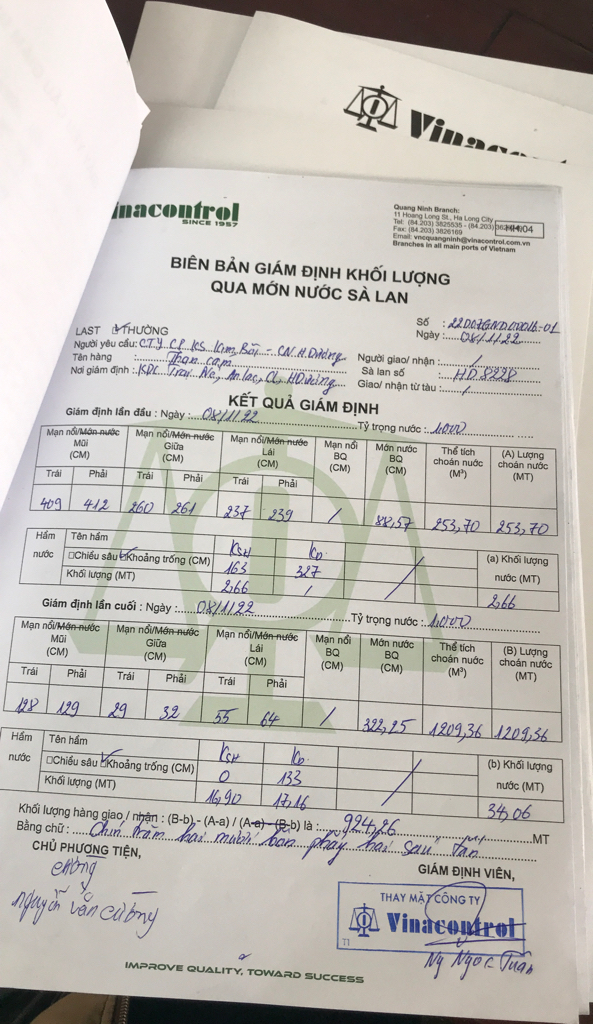 Vinacontrol
nacontrol
SINCE 1957
Quang Ninh Branch:
11 Hoang Long St., Ha Long City
Tel: (84.203) 3825535 - (84.203)
Fax: (84.203) 3826169
Email: vncquangninh@vinacontrol.com.vn
Branches in all main ports of Vietnam
HH.04
BIÊN BẢN GIÁM ĐỊNH KHỐI LƯỢNG
QUA MỚN NƯỚC SÀ LAN
Số :
LAST THƯỜNG
Ngày : 08/11/22
Người yêu cầu: CTY CP KS Kim Bôi - CN H.Dương
Người giao/ nhận : /
Tên hàng : Than cám
Sà lan số : HD 8228
Nơi giám định : KDC An lạc, CL, HDương
Giao/ nhận từ tàu : /
KẾT QUẢ GIÁM ĐỊNH
Giám định lần đầu : Ngày : 08/11/22 Tỷ trọng nước : 1,000
Mạn nổi/Mớn nước Mũi (CM) Mạn nổi/Mớn nước Giữa (CM) Mạn nổi/Mớn nước Lái (CM) Mạn nổi BQ (CM) Mớn nước BQ (CM) Thể tích choán nước (M³) (A) Lượng choán nước (MT)
Trái Phải Trái Phải Trái Phải
409 412 260 261 237 239 / 88,57 253,70 253,70
Hầm nước Tên hầm KSH KD (a) Khối lượng nước (MT)
□Chiều sâu ☑Khoảng trống (CM) 163 327
Khối lượng (MT) 2,66 / 2,66
Giám định lần cuối : Ngày : 08/11/22 Tỷ trọng nước : 1,000
Mạn nổi/Mớn nước Mũi (CM) Mạn nổi/Mớn nước Giữa (CM) Mạn nổi/Mớn nước Lái (CM) Mạn nổi BQ (CM) Mớn nước BQ (CM) Thể tích choán nước (M³) (B) Lượng choán nước (MT)
Trái Phải Trái Phải Trái Phải
128 129 29 32 55 64 / 322,25 1209,36 1209,36
Hầm nước Tên hầm KSH KD (b) Khối lượng nước (MT)
□Chiều sâu ☑Khoảng trống (CM) 0 133
Khối lượng (MT) 16,90 17,16 34,06
Khối lượng hàng giao / nhận : (B-b) - (A-a) / (A-a) - (B-b) là : 924,26 MT
Bằng chữ : Chín trăm hai mươi bốn phẩy hai sáu tấn
CHỦ PHƯƠNG TIỆN,
GIÁM ĐỊNH VIÊN,
nguyễn văn cường
THAY MẶT CÔNG TY
Vinacontrol
T1
Ng Ngọc Tuân
IMPROVE QUALITY, TOWARD SUCCESS